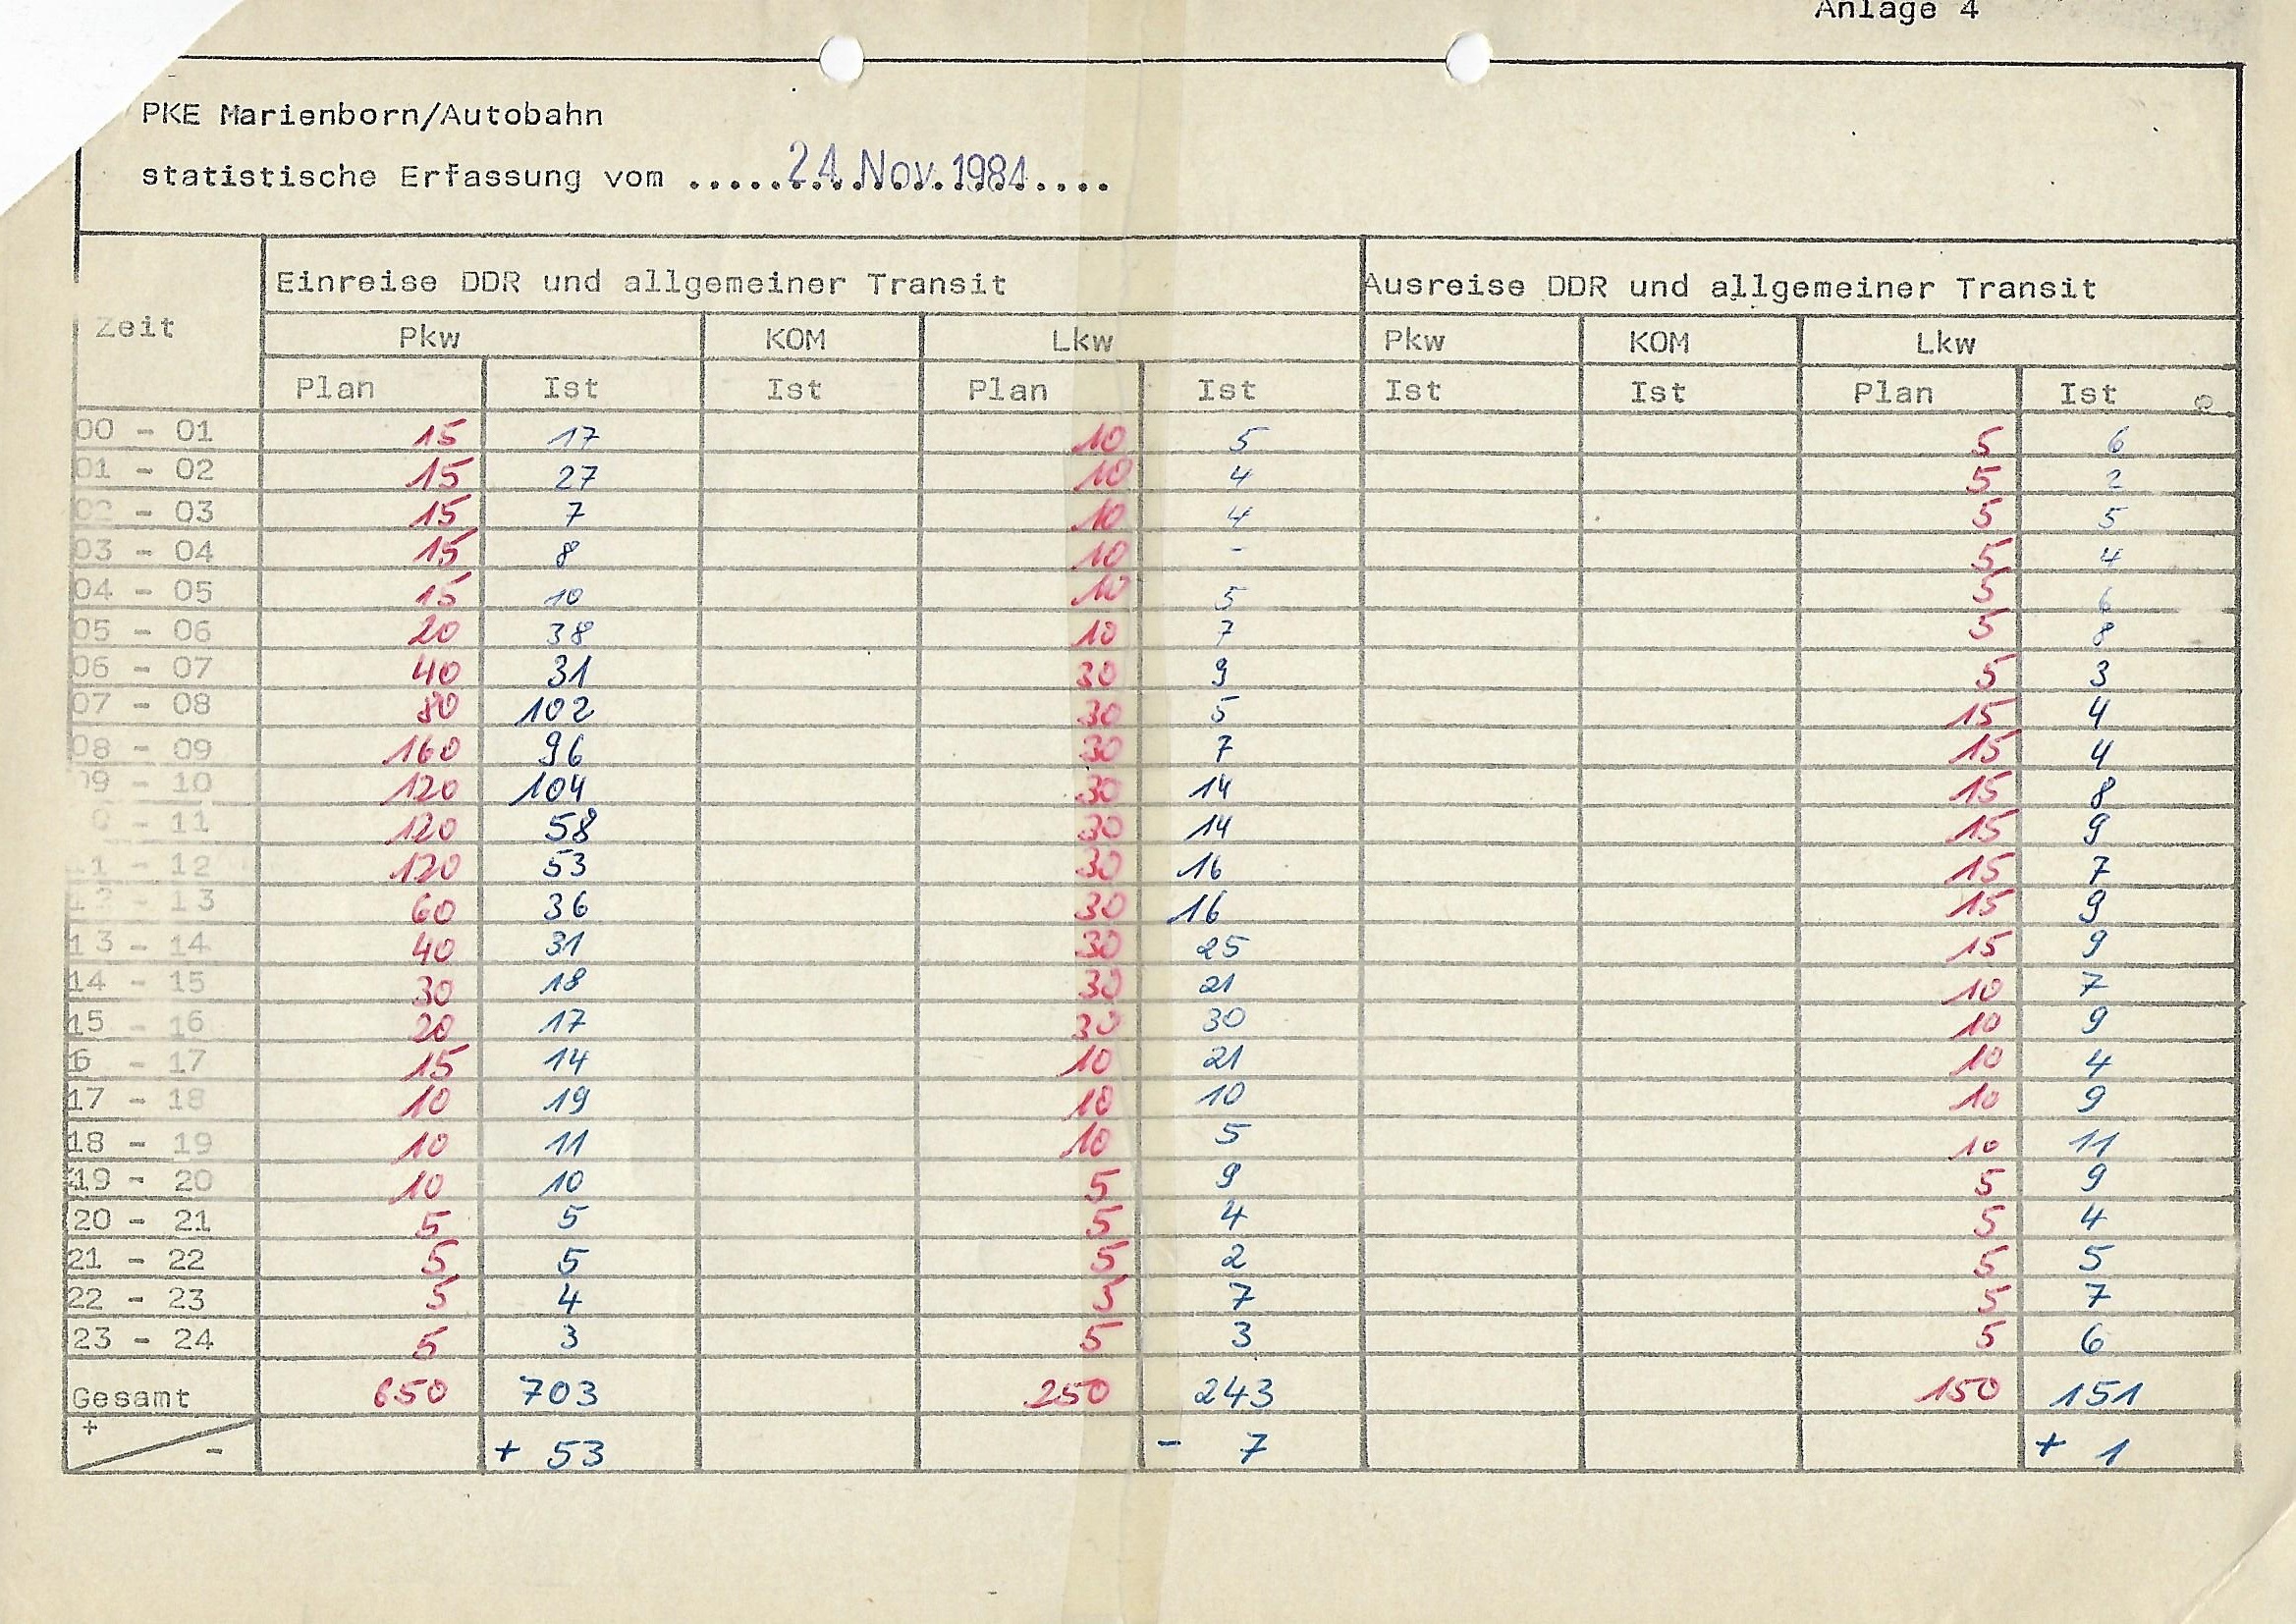 Anlage 4
PKE Marienborn/Autobahn
statistische Erfassung vom .....24. Nov. 1984....
Zeit Einreise DDR und allgemeiner Transit Ausreise DDR und allgemeiner Transit
Pkw KOM Lkw Pkw KOM Lkw
Plan Ist Ist Plan Ist Ist Ist Plan Ist
00 - 01 15 17 10 5 5 6
01 - 02 15 27 10 4 5 2
02 - 03 15 7 10 4 5 5
03 - 04 15 8 10 - 5 4
04 - 05 15 10 10 5 5 6
05 - 06 20 38 10 7 5 8
06 - 07 40 31 30 9 5 3
07 - 08 80 102 30 5 15 4
08 - 09 160 96 30 7 15 4
09 - 10 120 104 30 14 15 8
0 - 11 120 58 30 14 15 9
11 - 12 120 53 30 16 15 7
12 - 13 60 36 30 16 15 9
13 - 14 40 31 30 25 15 9
14 - 15 30 18 30 21 10 7
15 - 16 20 17 30 30 10 9
6 - 17 15 14 10 21 10 4
17 - 18 10 19 10 10 10 9
18 - 19 10 11 10 5 10 11
19 - 20 10 10 5 9 5 9
20 - 21 5 5 5 4 5 4
21 - 22 5 5 5 2 5 5
22 - 23 5 4 5 7 5 7
23 - 24 5 3 5 3 5 6
Gesamt 650 703 250 243 150 151
+ - + 53 - 7 + 1